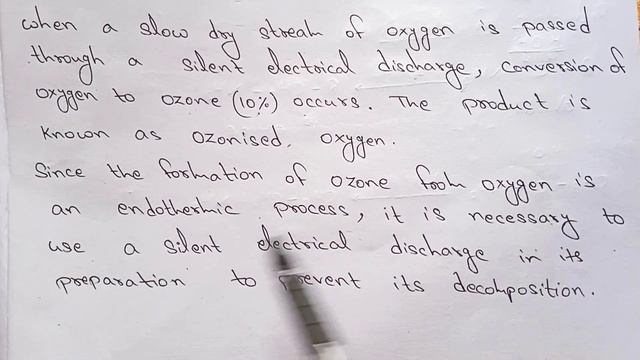 when a slow dry stream of oxygen is passed
through a silent electrical discharge, conversion of
oxygen to ozone (10%) occurs. The product is
known as ozonised. oxygen.
Since the formation of ozone from oxygen is
an endothermic process, it is necessary to
use a silent electrical discharge in its
preparation to prevent its decomposition.